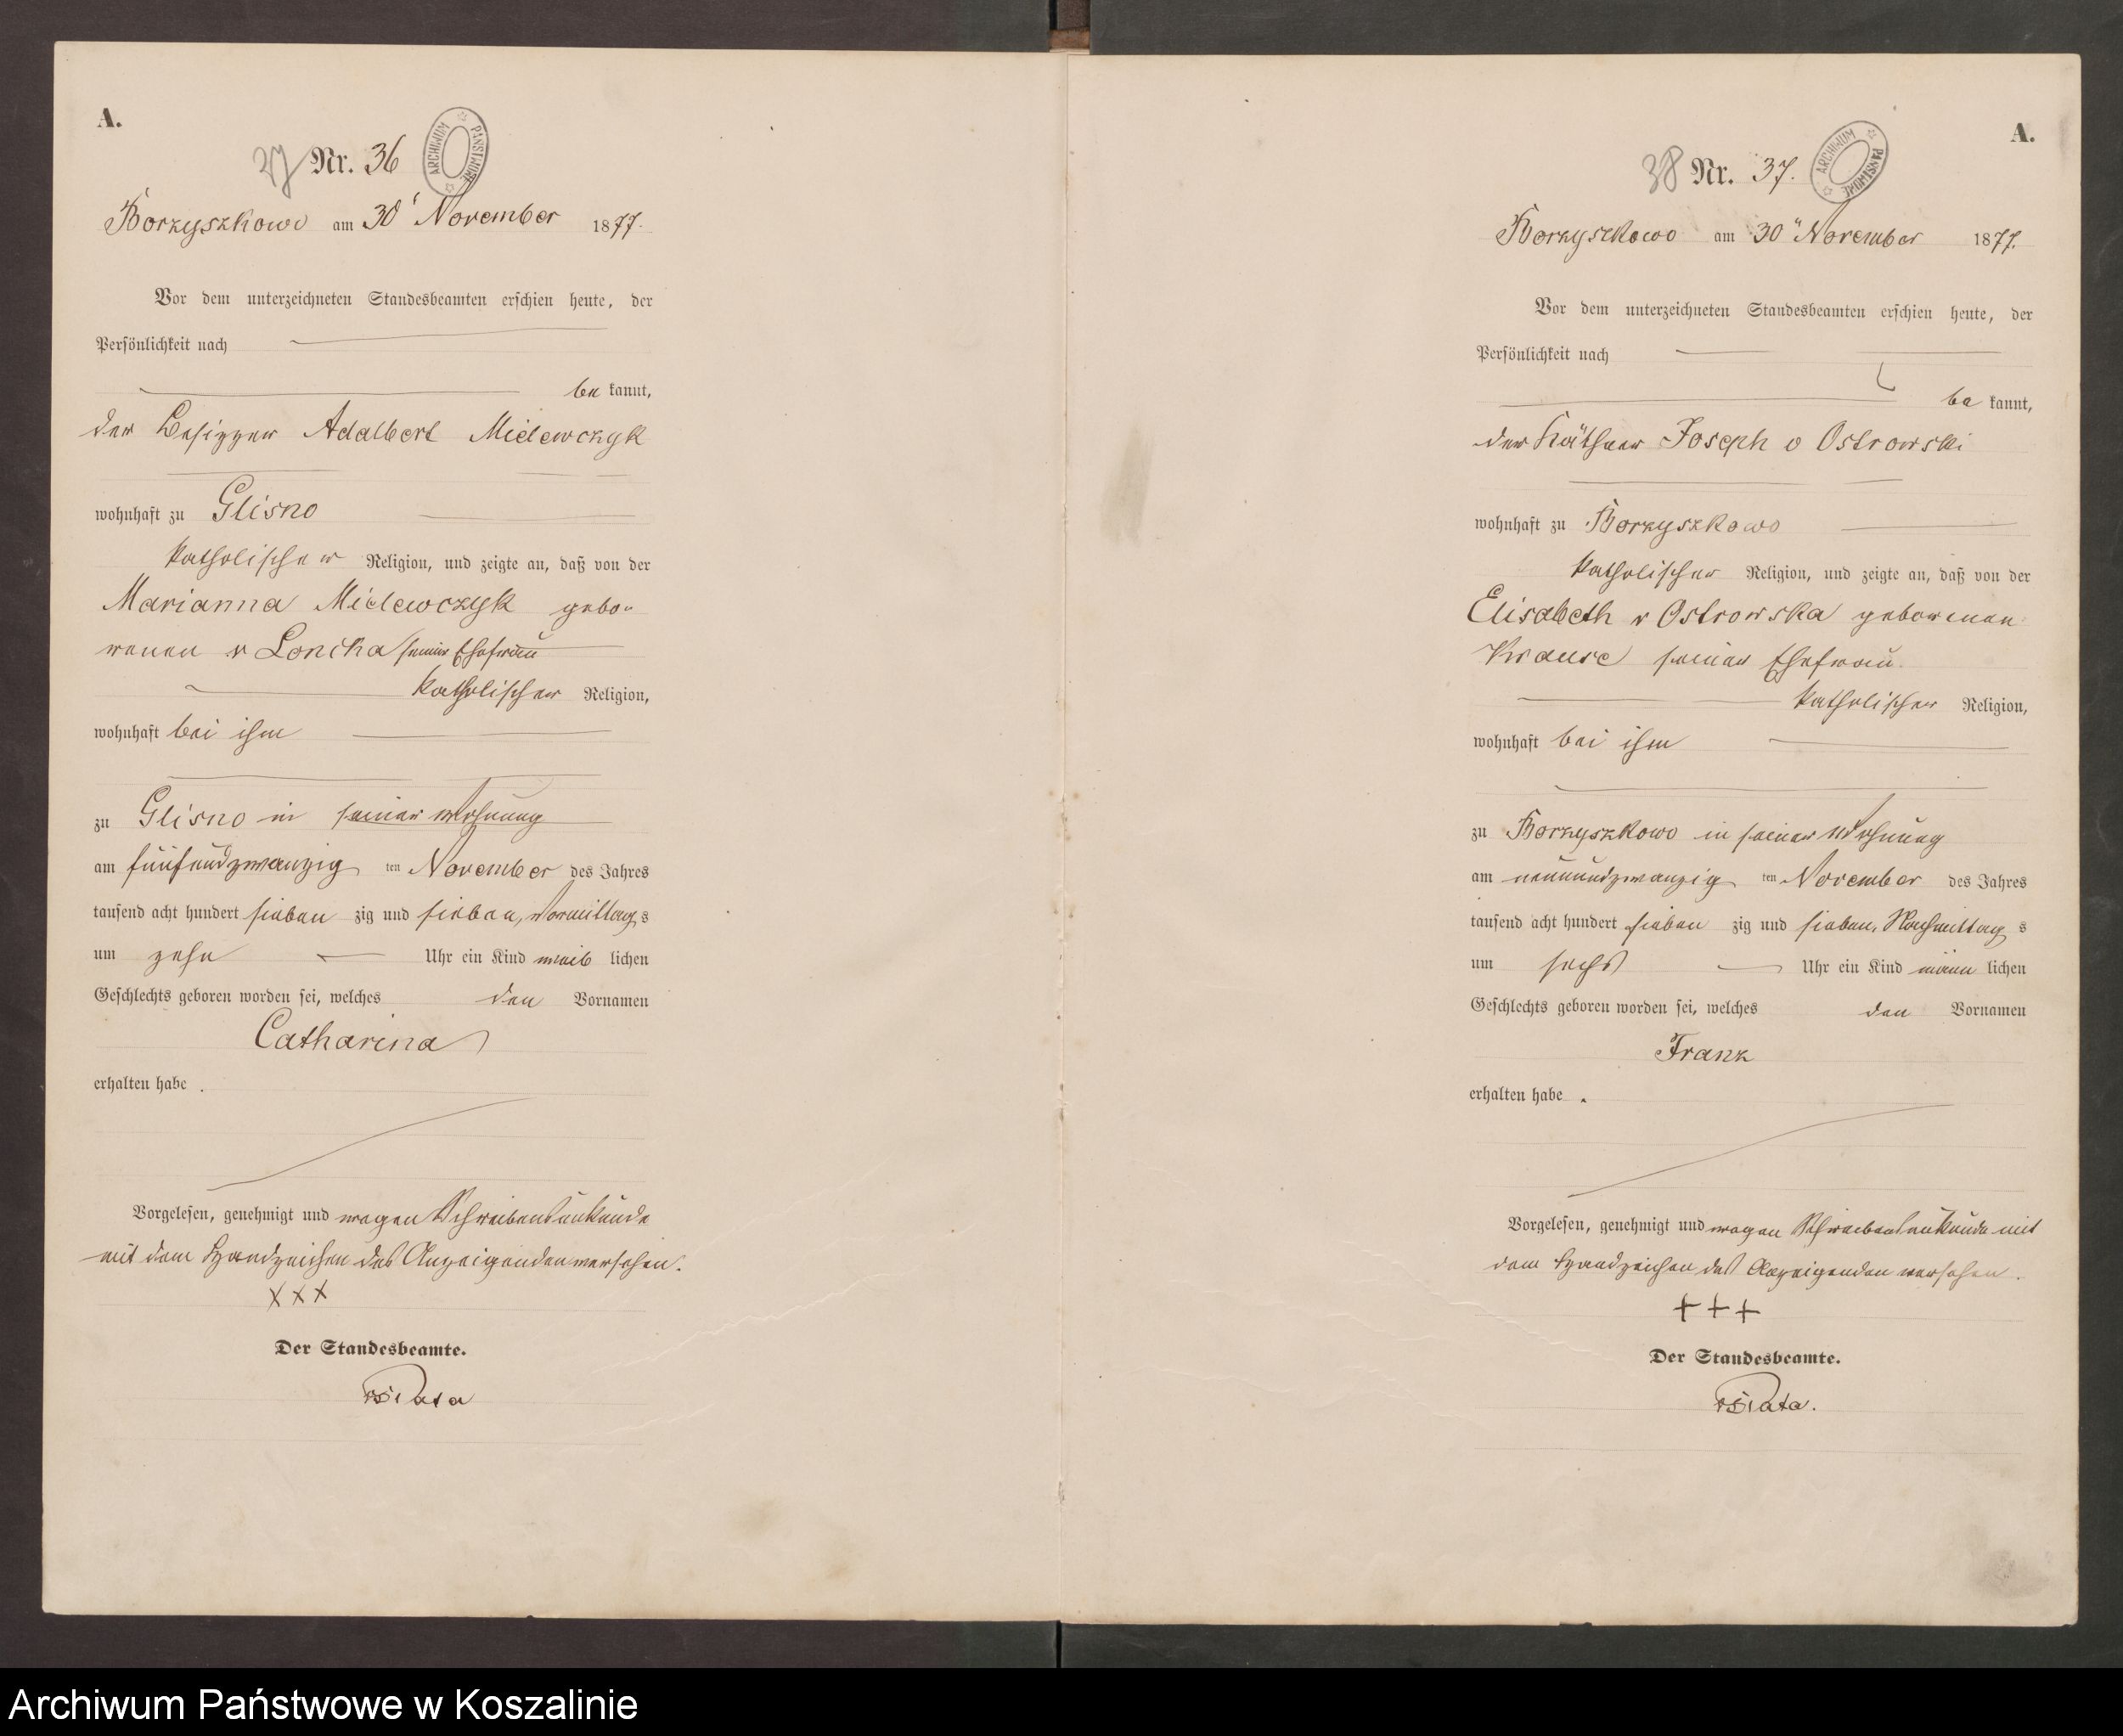 A.
37 Nr. 36
ARCHIWUM PAŃSTWOWE
Borzyszkowo am 30ᵗ November 1877.
Vor dem unterzeichneten Standesbeamten erschien heute, der
Persönlichkeit nach
be kannt,
der Besitzer Adalbert Mielewczyk
wohnhaft zu Glisno
katholischer Religion, und zeigte an, daß von der
Marianna Mielewczyk gebo-
renen v Loncka seiner Ehefrau
katholischer Religion,
wohnhaft bei ihm
zu Glisno in seiner Wohnung
am fünfundzwanzig ten November des Jahres
tausend acht hundert sieben zig und sieben, Vormittag s
um zehn Uhr ein Kind weib lichen
Geschlechts geboren worden sei, welches den Vornamen
Catharina
erhalten habe .
Vorgelesen, genehmigt und wegen Schreibensunkunde
mit dem Handzeichen des Anzeigenden versehen.
XXX
Der Standesbeamte.
A.
38 Nr. 37.
ARCHIWUM PAŃSTWOWE
Borzyszkowo am 30ᵗ November 1877.
Vor dem unterzeichneten Standesbeamten erschien heute, der
Persönlichkeit nach
be kannt,
der Käthner Joseph v Ostrowski
wohnhaft zu Borzyszkowo
katholischer Religion, und zeigte an, daß von der
Elisabeth v Ostrowska geborenen
Krause seiner Ehefrau.
katholischer Religion,
wohnhaft bei ihm
zu Borzyszkowo in seiner Wohnung
am neunundzwanzig ten November des Jahres
tausend acht hundert sieben zig und sieben, Nachmittag s
um sechs Uhr ein Kind männ lichen
Geschlechts geboren worden sei, welches den Vornamen
Franz
erhalten habe .
Vorgelesen, genehmigt und wegen Schreibensunkunde mit
dem Handzeichen des Anzeigenden versehen.
+++
Der Standesbeamte.
Archiwum Państwowe w Koszalinie